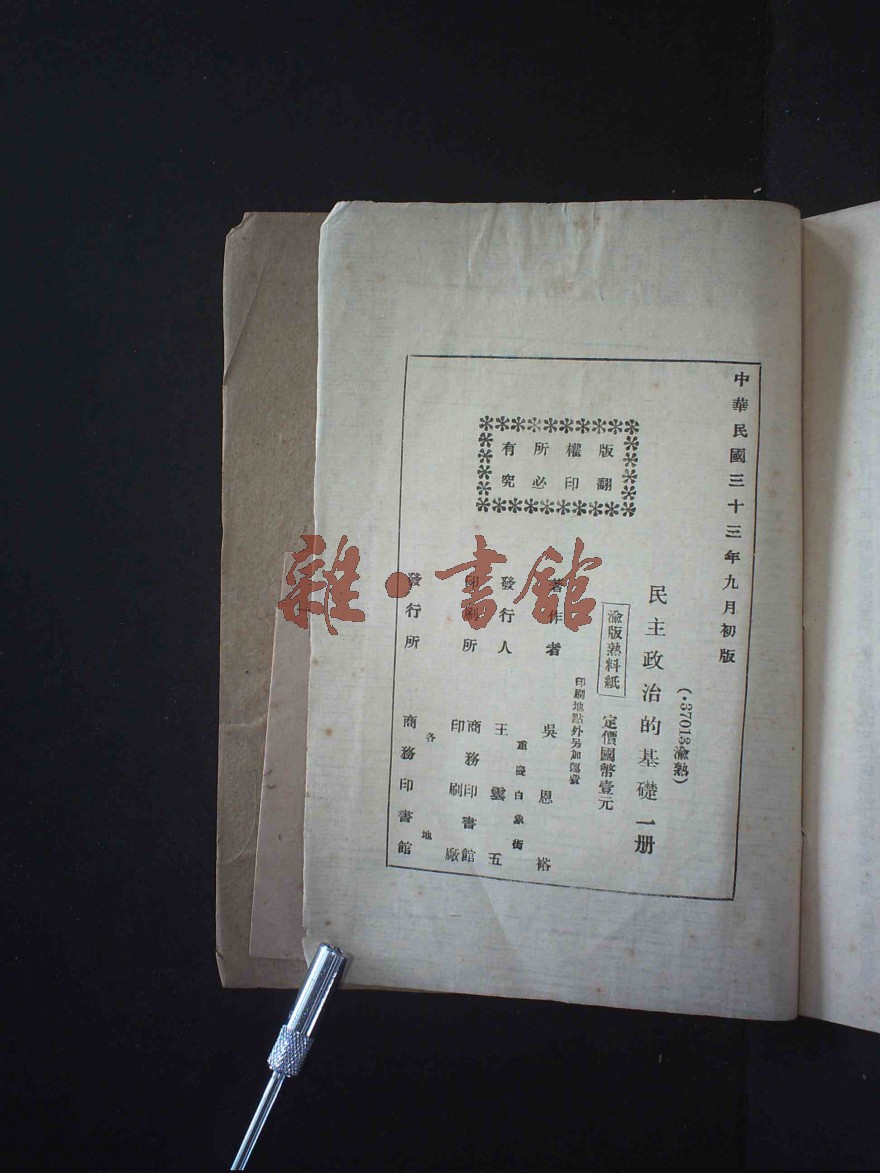 中華民國三十三年九月初版
(·37013渝熟)
民主政治的基礎一册
渝版熟料紙
定價國幣壹元
印刷地點外另加運費
著作者 吳恩裕
重慶白象街
發行人 王雲五
印刷所 商務印書館印刷廠
各地
發行所 商務印書館
版權所有
翻印必究
雜·書館